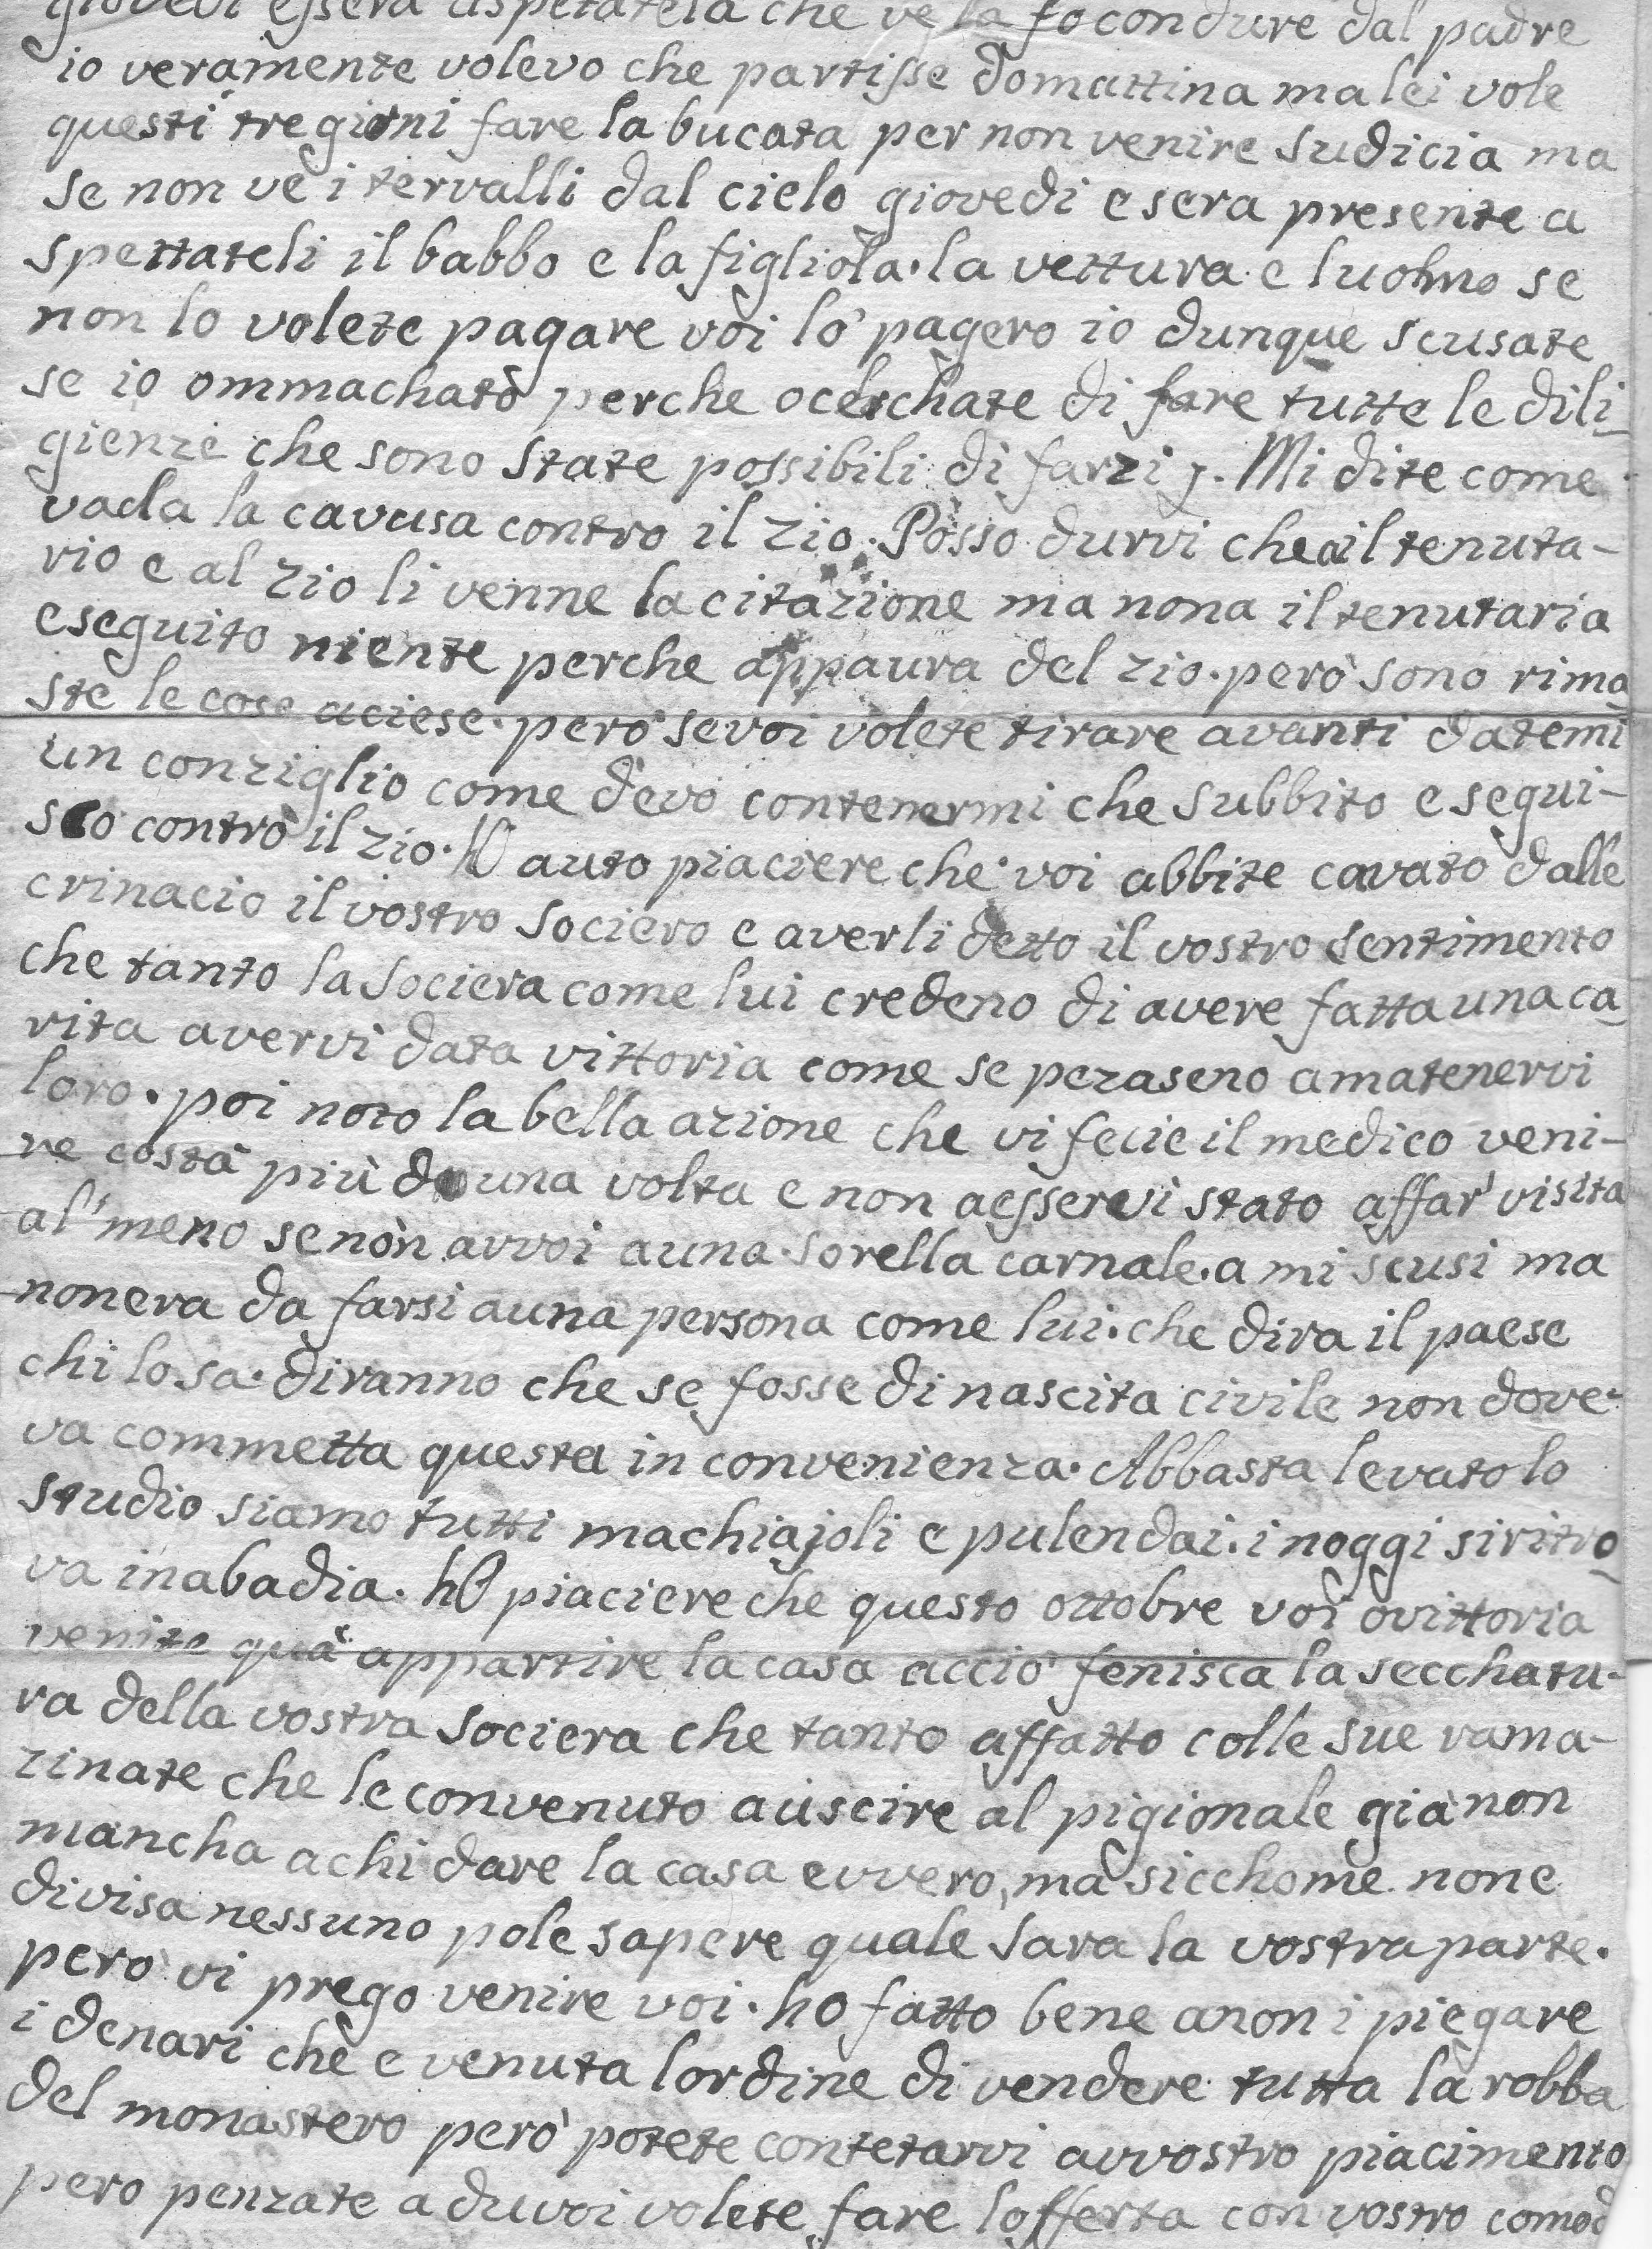 giovedi essera aspetatela che ve la fo condure dal padre
io veramente volevo che partisse domattina ma lei vole
questi tre giorni fare la bucata per non venire sudicia ma
se non ve i tervalli dal cielo giovedi e sera presente a
spettateli il babbo e la figliola. la vettura e luomo se
non lo volete pagare voi lo pagero io dunque scusate
se io ommachato perche o cerchate di fare tutte le dili-
gienze che sono state possibili di farzi. Mi dite come
vada la cavusa contro il zio. Posso durvi che a il tenuta-
rio e al zio li venne la citazione ma nona il tenutaria
eseguito niente perche appaura del zio. però sono rima-
ste le cose aciese. però se voi volete tirare avanti datemi
un conziglio come devo contenermi che subbito esegui-
sco contro il zio. HO auto piaciere che voi abbite cavato dalle
crinacio il vostro sociero e averli detto il vostro sentimento
che tanto la sociera come lui credeno di avere fatta una ca-
rita avervi data vittoria come se pezaseno amatenervi
loro. poi noto la bella azione che vi fecie il medico veni-
re costà più d una volta e non aesservi stato affar visita
al'meno se non avvoi auna sorella carnale. a mi scusi ma
nonera da farsi auna persona come lui. che dira il paese
chi lo sa. diranno che se fosse di nascita civile non dove-
va commetta questa in convenienza. Abbasta levato lo
studio siamo tutti machiajoli e pulendai. i noggi si ritro-
va in abadia. hO piaciere che questo ottobre voi o vittoria
venite quà appartire la casa acciò fenisca la secchatu-
ra della vostra sociera che tanto affatto colle sue rama-
zinate che le convenuto a uscire al pigionale già non
mancha a chi dare la casa evvero, ma sicchome none
divisa nessuno pole sapere quale sara la vostra parte.
però vi prego venire voi. ho fatto bene anon i piegare
i denari che e venuta lordine di vendere tutta la robba
del monastero però potete contetarvi avvostro piacimento
pero penzate a du voi volete fare lofferta con vostro comod